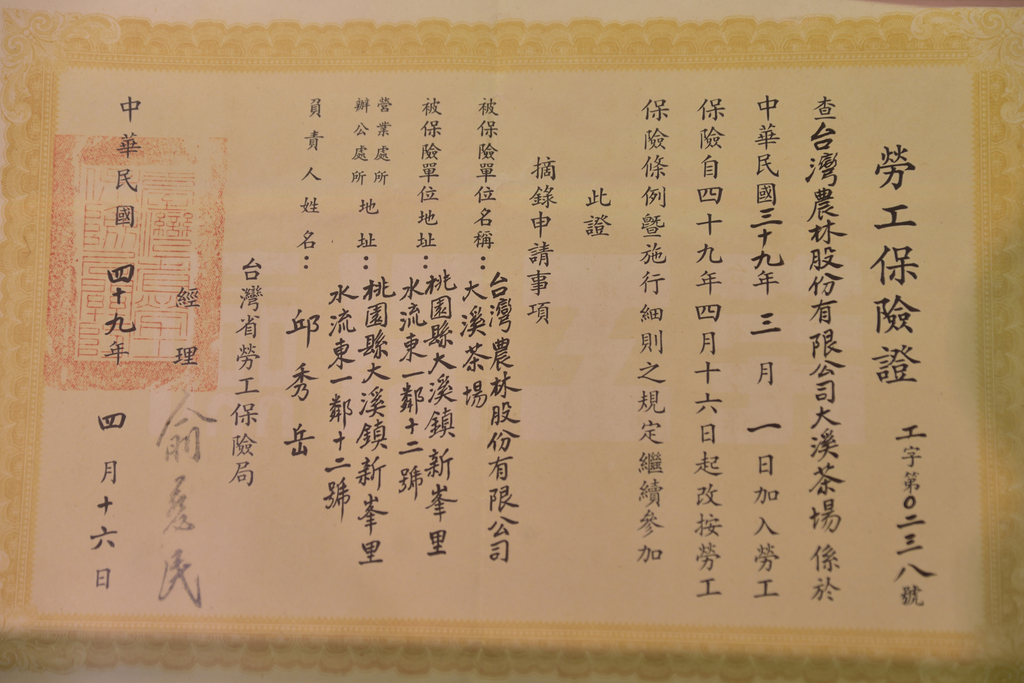 勞工保險證
工字第0二三八號
查台灣農林股份有限公司大溪茶場係於
中華民國三十九年三月一日加入勞工
保險自四十九年四月十六日起改按勞工
保險條例暨施行細則之規定繼續參加
此證
摘錄申請事項
被保險單位名稱：台灣農林股份有限公司
大溪茶場
被保險單位地址：桃園縣大溪鎮新峯里
水流東一鄰十二號
營業處所
辦公處所
地址：桃園縣大溪鎮新峯里
水流東一鄰十二號
負責人姓名：邱秀岳
台灣省勞工保險局
經理
中華民國四十九年四月十六日